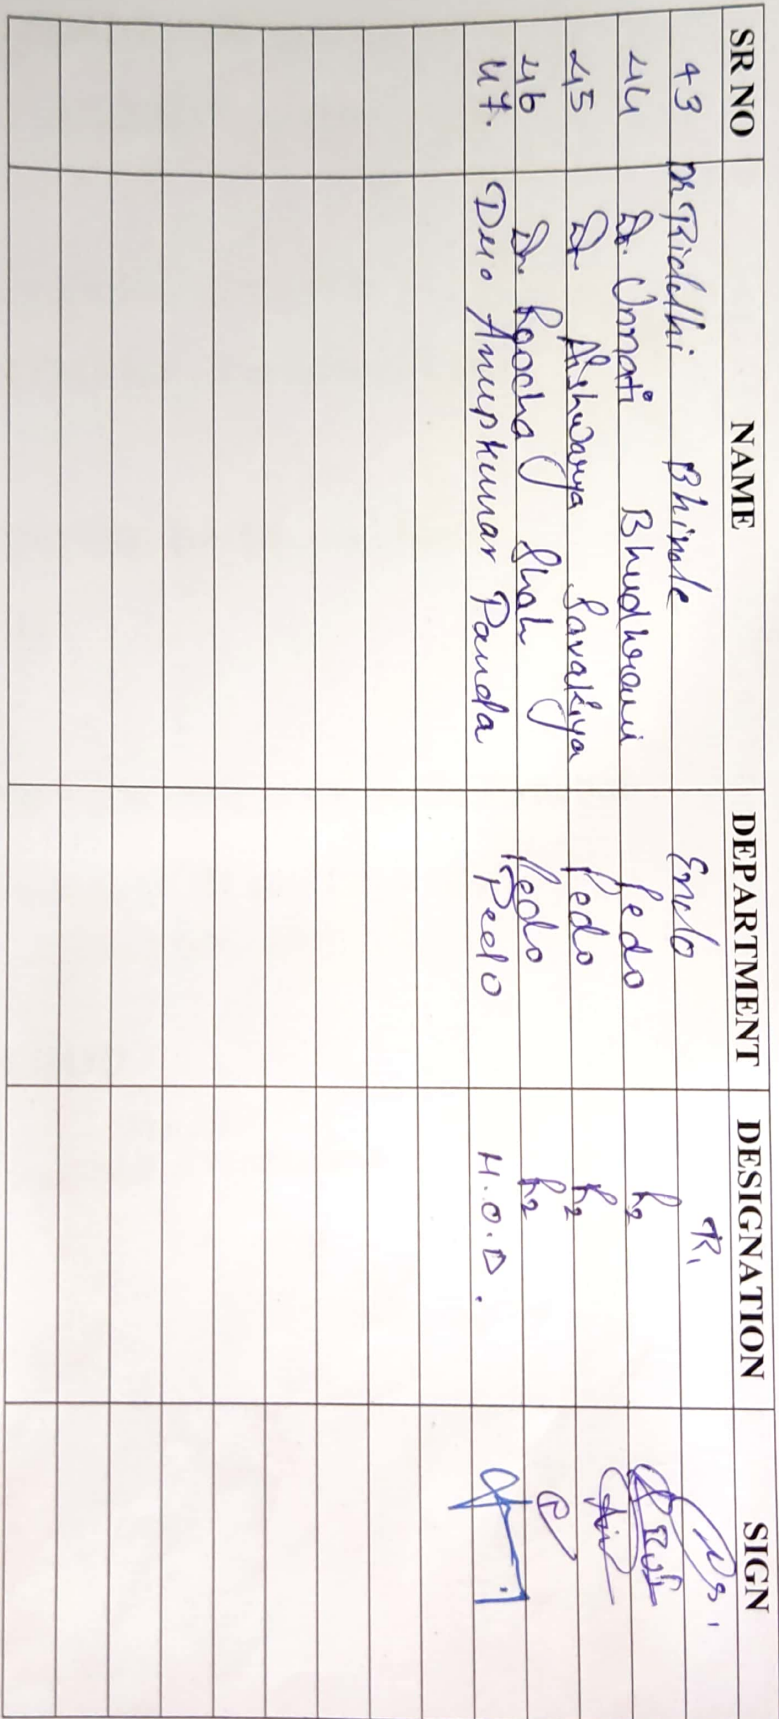 SR NO NAME DEPARTMENT DESIGNATION SIGN
43 Dr Riddhi Bhimde Endo R1
44 Dr. Unnati Bhudhrani Pedo R2
45 Dr Aishwarya Savakiya Pedo R2
46 Dr. Roocha Shah Pedo R2
47. Anupkumar Panda Pedo H.O.D.